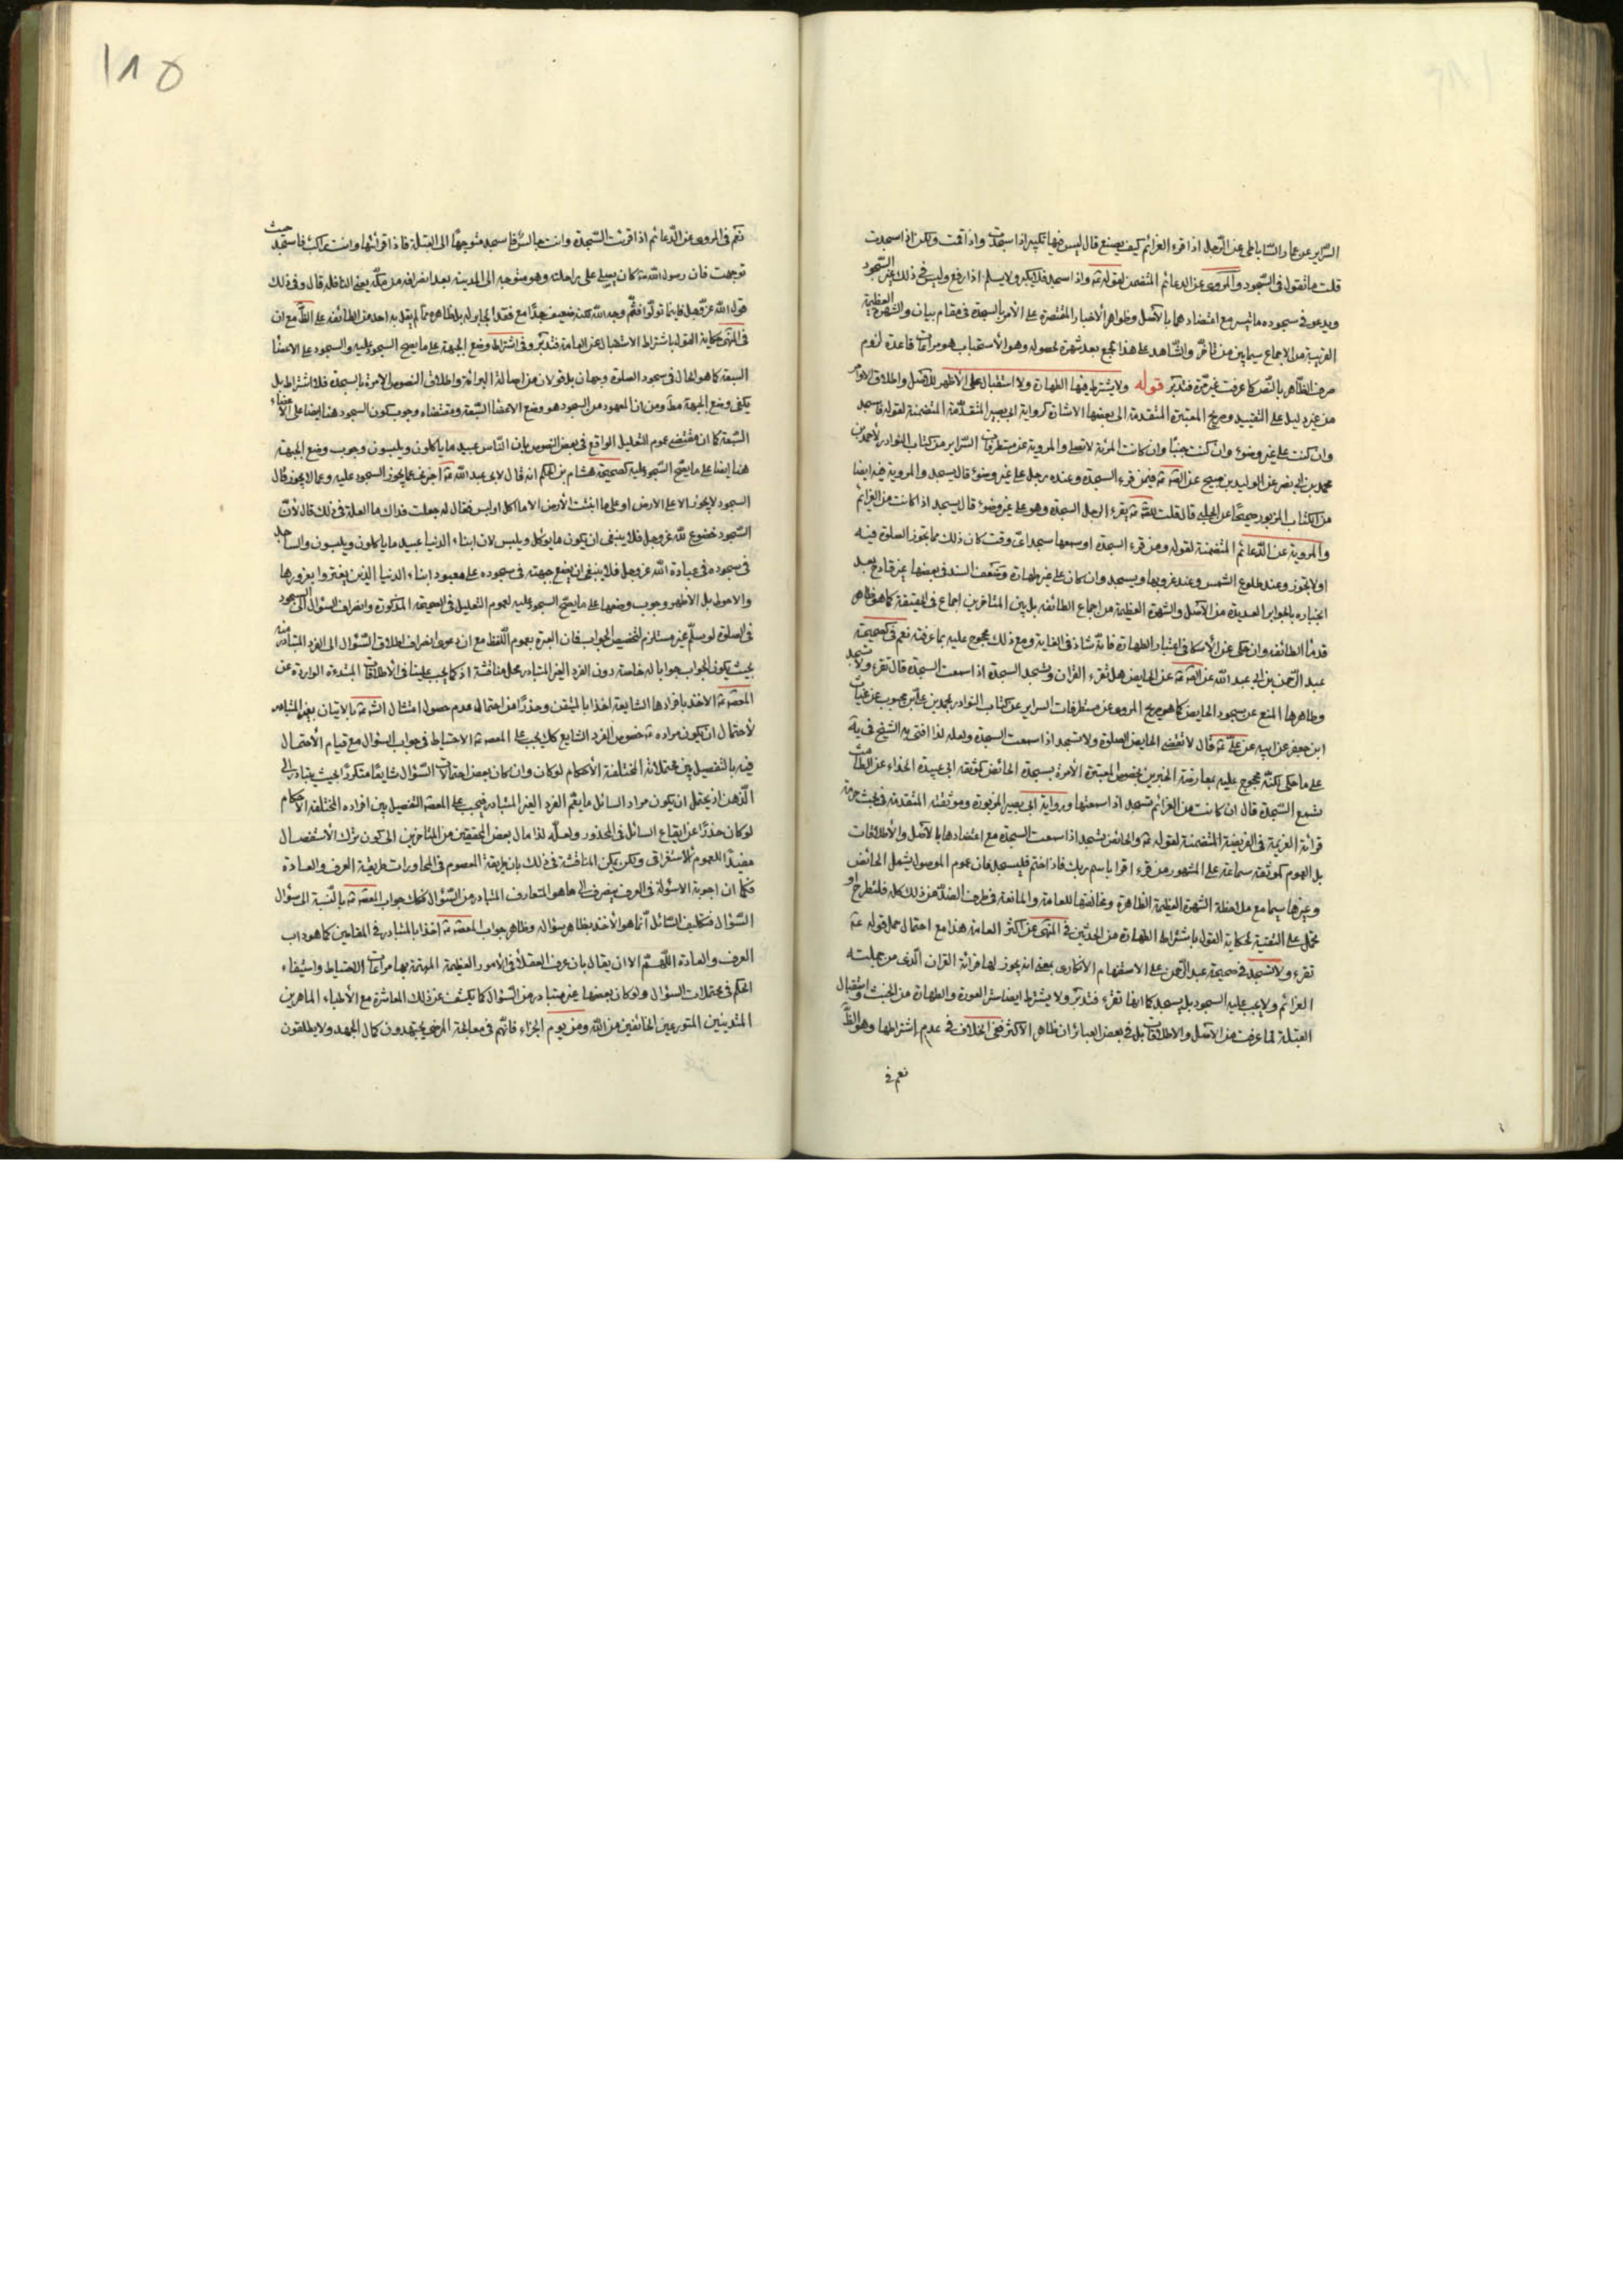 السراير عن عمار الساباطى عن الرجل اذا قرء العزائم كيف يصنع قال ليس فيها تكبير اذا سجدت واذا قمت ولكن اذا سجدت
قلت ما تقول فى السجود والمروى عن الدعائم المتضمن لقوله ع واذا سجد فلا يكبر ولا يسلم اذا رفع وليس فى ذلك غير السجود
ويدعو فى سجوده ما تيسر مع اعتضادهما بالاصل وظواهر الاخبار المقتصرة على الامر بالسجدة فى مقام بيان والشهرة العظيمة
القريبة من الاجماع سيما بين من تاخر والشاهد على هذا الجمع بعد شهرة لحصوله وهو الاستحباب هو مراعات قاعدة لزوم
صرف الظاهر بالنص كما عرفت غير مرة فتدبر قوله ولا يشترط فيها الطهارة ولا استقبال على الاظهر للاصل واطلاق الاوامر
من غير دليل على التقييد وصريح المعتبرة المتقدمة الى بعضها الاشارة كرواية ابى بصير المتقدمة المتضمنة لقوله فاسجد
وان كنت على غير وضوء وان كنت جنبا وان كانت المرئة لا تصلى والمروية عن مستطرفات السراير من كتاب النوادر لاحمد بن
محمد بن ابى نصر عن الوليد بن صبيح عن الصادق ع فيمن قرء السجدة وعنده رجل على غير وضوء قال يسجد والمروية فيه ايضا
من الكتاب المزبور صحيحا عن الحلبى قال قلت للصادق ع يقرء الرجل السجدة وهو على غير وضوء قال يسجد اذا كانت من العزائم
والمروية عن الدعائم المتضمنة لقوله ومن قرء السجدة او سمعها سجد اى وقت كان ذلك مما تجوز الصلوة فيه
او لا تجوز وعند طلوع الشمس وعند غروبها ويسجد وان كان على غير طهارة وضعف السند فى بعضها غير قادح بعد
انجباره بالجوابر العديدة من الاصل والشهرة العظيمة من اجماع الطائفه بل بين المتاخرين اجماع فى الحقيقة كما هو ظاهر
قدماء الطائفه وان حكى عن الاسكافى اعتبار الطهارة فانه شاذ فى الغاية ومع ذلك محجوج عليه بما عرفته نعم فى صحيحة
عبد الرحمن بن ابى عبد الله عن الصادق ع عن الحايض هل تقرء القران وتسجد السجدة اذا سمعت السجدة قال تقرء ولا تسجد
وظاهرها المنع عن سجود الحايض كما هو صريح المروى عن مستطرفات السراير عن كتاب النوادر لمحمد بن على بن محبوب عن غياث
ابن جعفر عن ابيه عن على ع قال لا تقضى الحايض الصلوة ولا تسجد اذا سمعت السجدة ولعله لذا افتى به الشيخ فى يه
على ما حكى لكنه محجوج عليه بمعارضة الخبرين بخصوص المعتبرة الآمرة بسجدة الحائض كموثقه ابى عبيدة الحذاء عن الطامث
تسمع السجدة قال ان كانت من العزائم تسجد اذا سمعتها ورواية ابى بصير المزبورة وموثقته المتقدمة فى بحث حرمة
قرائة العزيمة فى الفريضة المتضمنة لقوله ع والحائض تسجد اذا سمعت السجدة مع اعتضادها بالاصل والاطلاقات
بل العموم كموثقه سماعة على المشهور من قرء اقرا باسم ربك فاذا ختم فليسجد فان عموم الموصول يشمل الحائض
وغيرها سيما مع ملاحظة الشهرة العظيمة الظاهرة ومخالفتها للعامة والمانعة فى طرف الضد من ذلك كله فلتطرح او
تحمل على التقية لحكاية القول باشتراط الطهارة من الحدثين فى المنتهى عن اكثر العامة هذا مع احتمال حمل قوله ع
تقرء ولا تسجد فى صحيحة عبد الرحمن على الاستفهام الانكارى بمعنى انه يجوز لها قرائة القران الذى من جملته
العزائم ولا يجب عليه السجود بل يسجد كما انها تقرء فتدبر ولا يشترط ايضا ستر العورة والطهارة من الخبث واستقبال
القبلة لما عرفت من الاصل والاطلاقات بل فى بعض العبائر ان ظاهر الاكثر نفى الخلاف فى عدم اشتراطها وهو الظ
نعم فى
١٨٥
نعم فى المروى عن الدعائم اذا قرئت السجدة وانت جالس فاسجد متوجها الى القبلة فاذا قرائتها وانت راكب فاسجد حيث
توجهت فان رسول الله ص كان يصلى على راحلته وهو متوجه الى المدينه بعد انصرافه من مكة يعنى النافلة قال وفى ذلك
قول الله عز وجل فاينما تولوا فثم وجه الله لكنه ضعيف جدا مع فقد الجابر له بل ظاهره مما لم يقل به احد من الطائفه على الظ مع ان
فى المنتهى حكاية القول باشتراط الاستقبال عن العامة فتدبر وفى اشتراط وضع الجبهة على ما يصح السجود عليه والسجود على الاعضا
السبعة كما هو الحال فى سجود الصلوة وجهان بل قولان من اصالة البرائة واطلاق النصوص الآمرة بالسجدة فلا اشتراط بل
يكفى وضع الجبهة مط ومن ان المعهود من السجود هو وضع الاعضا السبعة ومقتضاه وجوب كون السجود هنا ايضا على الاعضاء
السبعة كما ان مقتضى عموم التعليل الواقع فى بعض النصوص بان الناس عبيد ما ياكلون ويلبسون وجوب وضع الجبهة
هنا ايضا على ما يصح السجود عليه كصحيحة هشام بن الحكم انه قال لابى عبد الله ع اخبرنى عما يجوز السجود عليه وعما لا يجوز قال
السجود لا يجوز الا على الارض او على ما انبتت الارض الا ما اكل او لبس فقال له جعلت فداك ما العلة فى ذلك قال لان
السجود خضوع لله عز وجل فلا ينبغى ان يكون ما يؤكل ويلبس لان ابناء الدنيا عبيد ما ياكلون ويلبسون والساجد
فى سجوده فى عبادة الله عز وجل فلا ينبغى ان يضع جبهته فى سجوده على معبود ابناء الدنيا الذين يغتروا بغرورها
والاحوط بل الاظهر وجوب وضعها على ما يصح السجود عليه لعموم التعليل فى الصحيحة المذكورة وانصراف السؤال الى السجود
فى الصلوة لو سلم غير مستلزم لتخصيص الجواب فان العبرة بعموم اللفظ مع ان دعوى انصراف اطلاق السؤال الى الفرد المتبادر منه
بحيث يكون الجواب جوابا له خاصة دون الفرد الغير المتبادر محل مناقشة اذ كما يجب علينا فى الاطلاقات المبتدءة الواردة عن
المعصوم ع الاخذ بافرادها الشايعة اخذا بالمتيقن وحذرا من احتمال عدم حصول امتثال الشرع بالاتيان بغير المتبادر
لاحتمال ان يكون مراده ع خصوص الفرد الشايع كك يجب على المعصوم ع الاحتياط فى جواب السؤال مع قيام الاحتمال
فيه بالتفصيل بين محتملاته المختلفة الاحكام لو كان وان كان بعض احتمالات السؤال شايعا متكررا بحيث يتبادر الى
الذهن اذ يحتمل ان يكون مراد السائل ما يعم الفرد الغير المتبادر فيجب على المعصوم التفصيل بين افراده المختلفة الاحكام
لو كان حذرا عن ايقاع السائل فى المحذور ولعله لذا مال بعض المحققين من المتاخرين الى كون ترك الاستفصال
مفيدا للعموم الاستغراقى ولكن يمكن المناقشة فى ذلك بان طريقة المعصوم فى المحاورات طريقة العرف والعادة
فكما ان اجوبة الاسئولة فى العرف ينصرف الى ما هو المتعارف المتبادر من السؤال فكك جواب المعصوم ع بالنسبة الى سؤال
السؤال فتكليف السائل انما هو الاخذ بظاهر سؤاله وظاهر جواب المعصوم ع اخذا بالمتبادر فى المقامين كما هو داب
العرف والعادة اللهم الا ان يقال بان عرف العقلاء فى الامور العظيمة المهتمة بها مراعات الاحتياط واستيفاء
الحكم فى محتملات السؤال ولو كان بعضها غير متبادر من السؤال كما يكشف عن ذلك المعاشرة مع الاطباء الماهرين
المتدينين المتورعين الخائفين من الله ومن يوم الجزاء فانهم فى معالجة المرضى يجتهدون كمال الجهد ولا يطلقون